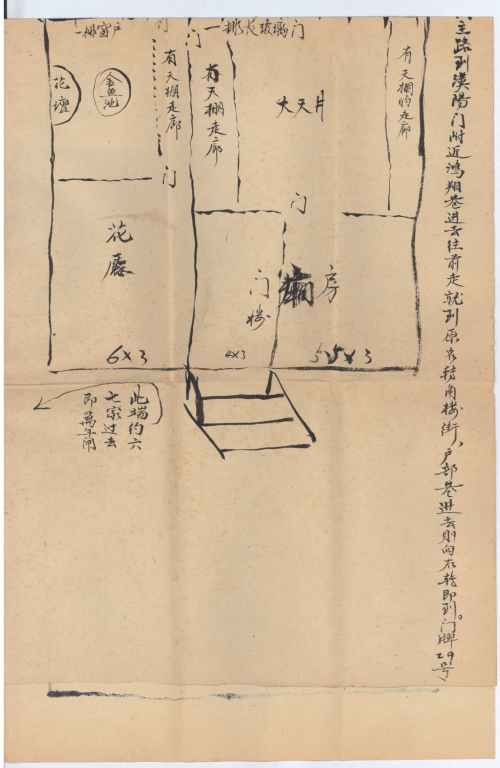 主路到漢陽门附近鴻翔巷进去往前走就到原名转角楼街，户部巷进去则向右转即到门牌29号。
一排窗户
门
一排长玻璃门
花壇
金鱼池
有天棚走廊
有天棚走廊
大天井
有天棚的走廊
门
门
花廳
门楼
房
6×3
4×3
5.5×3
此端约六
七家过去
即萬年闸